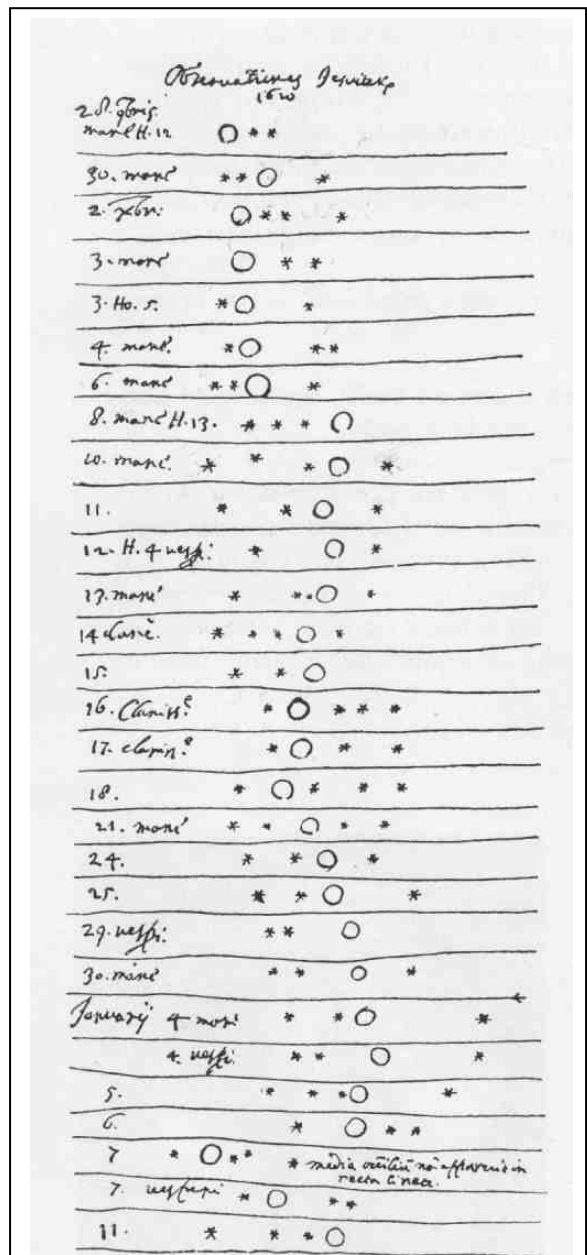 Observationes Jesuitar
1610
28. 9bris.
mane H. 12
30. mane
2. Xbri:
3. mane
3. Ho. 5.
4. mane.
6. mane
8. mane H. 13.
10. mane.
11.
12. H. 4 vesp:
13. mane
14 clarè.
15.
16. Clariss.e
17. clariss.e
18.
21. mane
24.
25.
29. vesp:
30. mane
Januarij 4 mane
4. vesp:
5.
6.
7 media non in
recta linea.
7. vesperi
11.